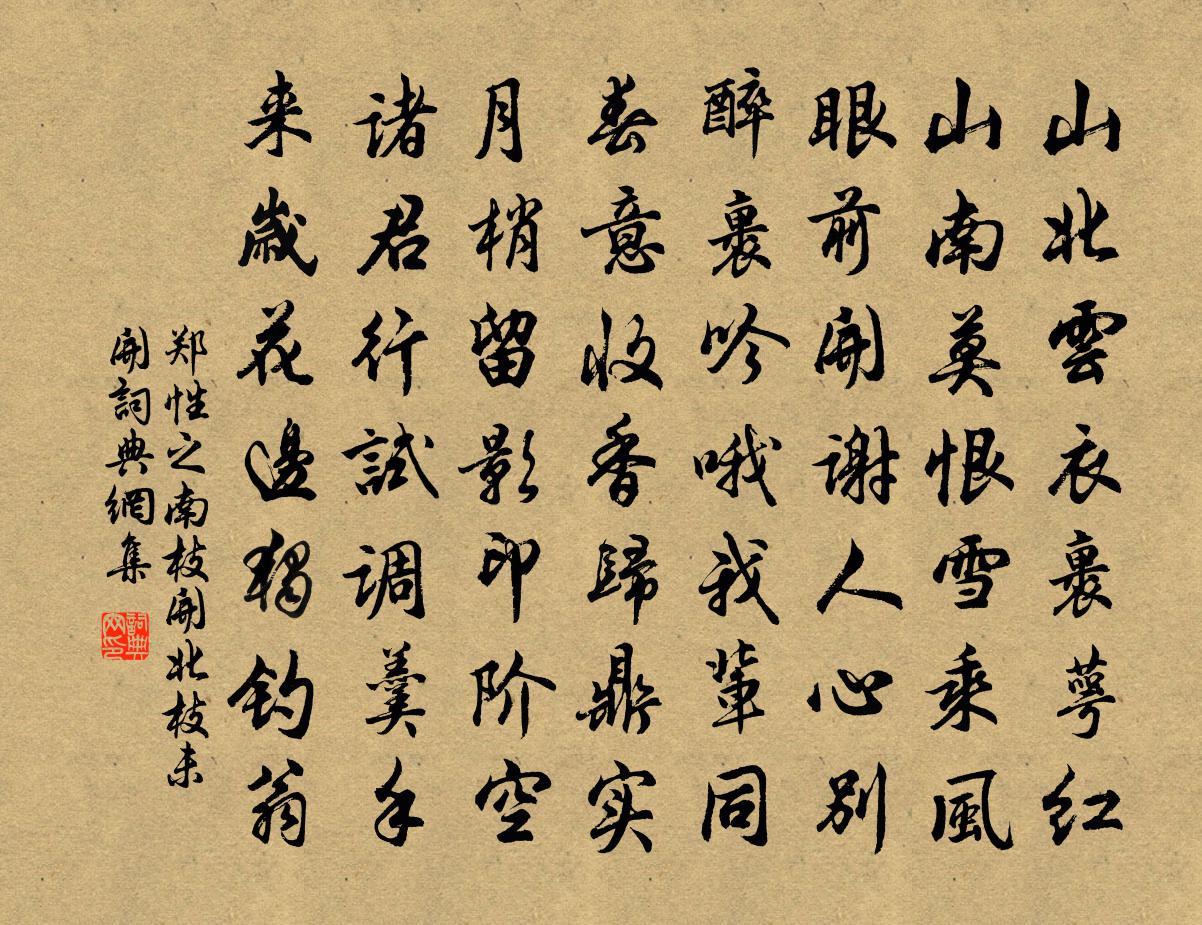 山北雲衣裹萼红
山南莫恨雪乘風
眼前開谢人心别
醉裹吟哦我輩同
春意收香歸鼎实
月梢留影印阶空
诸君行試调羹手
来歲花邊獨钓翁
郑性之南枝開北枝未
開詞典網集
詞典網印